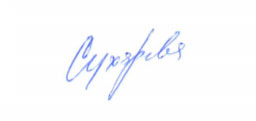 Сухарева